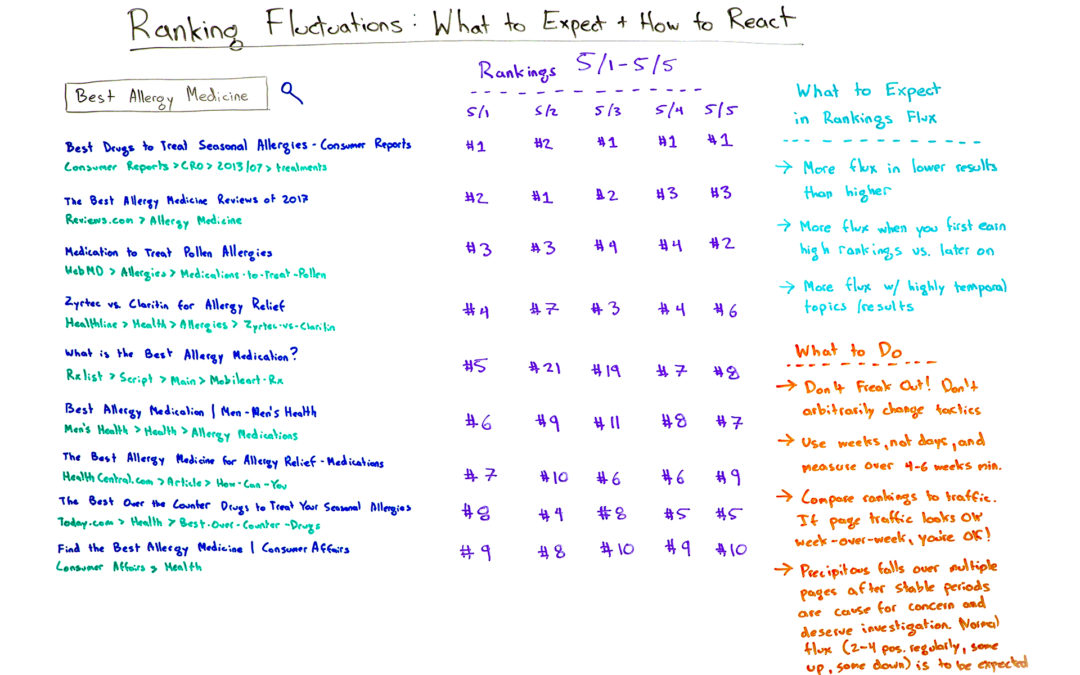 Ranking Fluctuations: What to Expect + How to React
Best Allergy Medicine
Rankings 5/1-5/5
5/1 5/2 5/3 5/4 5/5
Best Drugs to Treat Seasonal Allergies - Consumer Reports #1 #2 #1 #1 #1
Consumer Reports > CRO > 2013/07 > treatments
The Best Allergy Medicine Reviews of 2017 #2 #1 #2 #3 #3
Reviews.com > Allergy Medicine
Medication to Treat Pollen Allergies #3 #3 #4 #4 #2
WebMD > Allergies > Medications-to-Treat-Pollen
Zyrtec vs. Claritin for Allergy Relief #4 #7 #3 #4 #6
Healthline > Health > Allergies > Zyrtec-vs-Claritin
What is the Best Allergy Medication? #5 #21 #19 #7 #8
Rxlist > Script > Main > Mobileart-Rx
Best Allergy Medication | Men-Men's Health #6 #9 #11 #8 #7
Men's Health > Health > Allergy Medications
The Best Allergy Medicine for Allergy Relief - Medications #7 #10 #6 #6 #9
Health Central.com > Article > How-Can-You
The Best Over the Counter Drugs to Treat Your Seasonal Allergies #8 #4 #8 #5 #5
Today.com > Health > Best-Over-Counter-Drugs
Find the Best Allergy Medicine | Consumer Affairs #9 #8 #10 #9 #10
Consumer Affairs > Health
What to Expect
in Rankings Flux
→ More flux in lower results
than higher
→ More flux when you first earn
high rankings vs. later on
→ More flux w/ highly temporal
topics/results
What to Do
→ Don't Freak Out! Don't
arbitrarily change tactics
→ Use weeks, not days, and
measure over 4-6 weeks min.
→ Compare rankings to traffic.
If page traffic looks OK
week-over-week, you're OK!
→ Precipitous falls over multiple
pages after stable periods
are cause for concern and
deserve investigation. Normal
flux (2-4 pos. regularly, some
up, some down) is to be expected